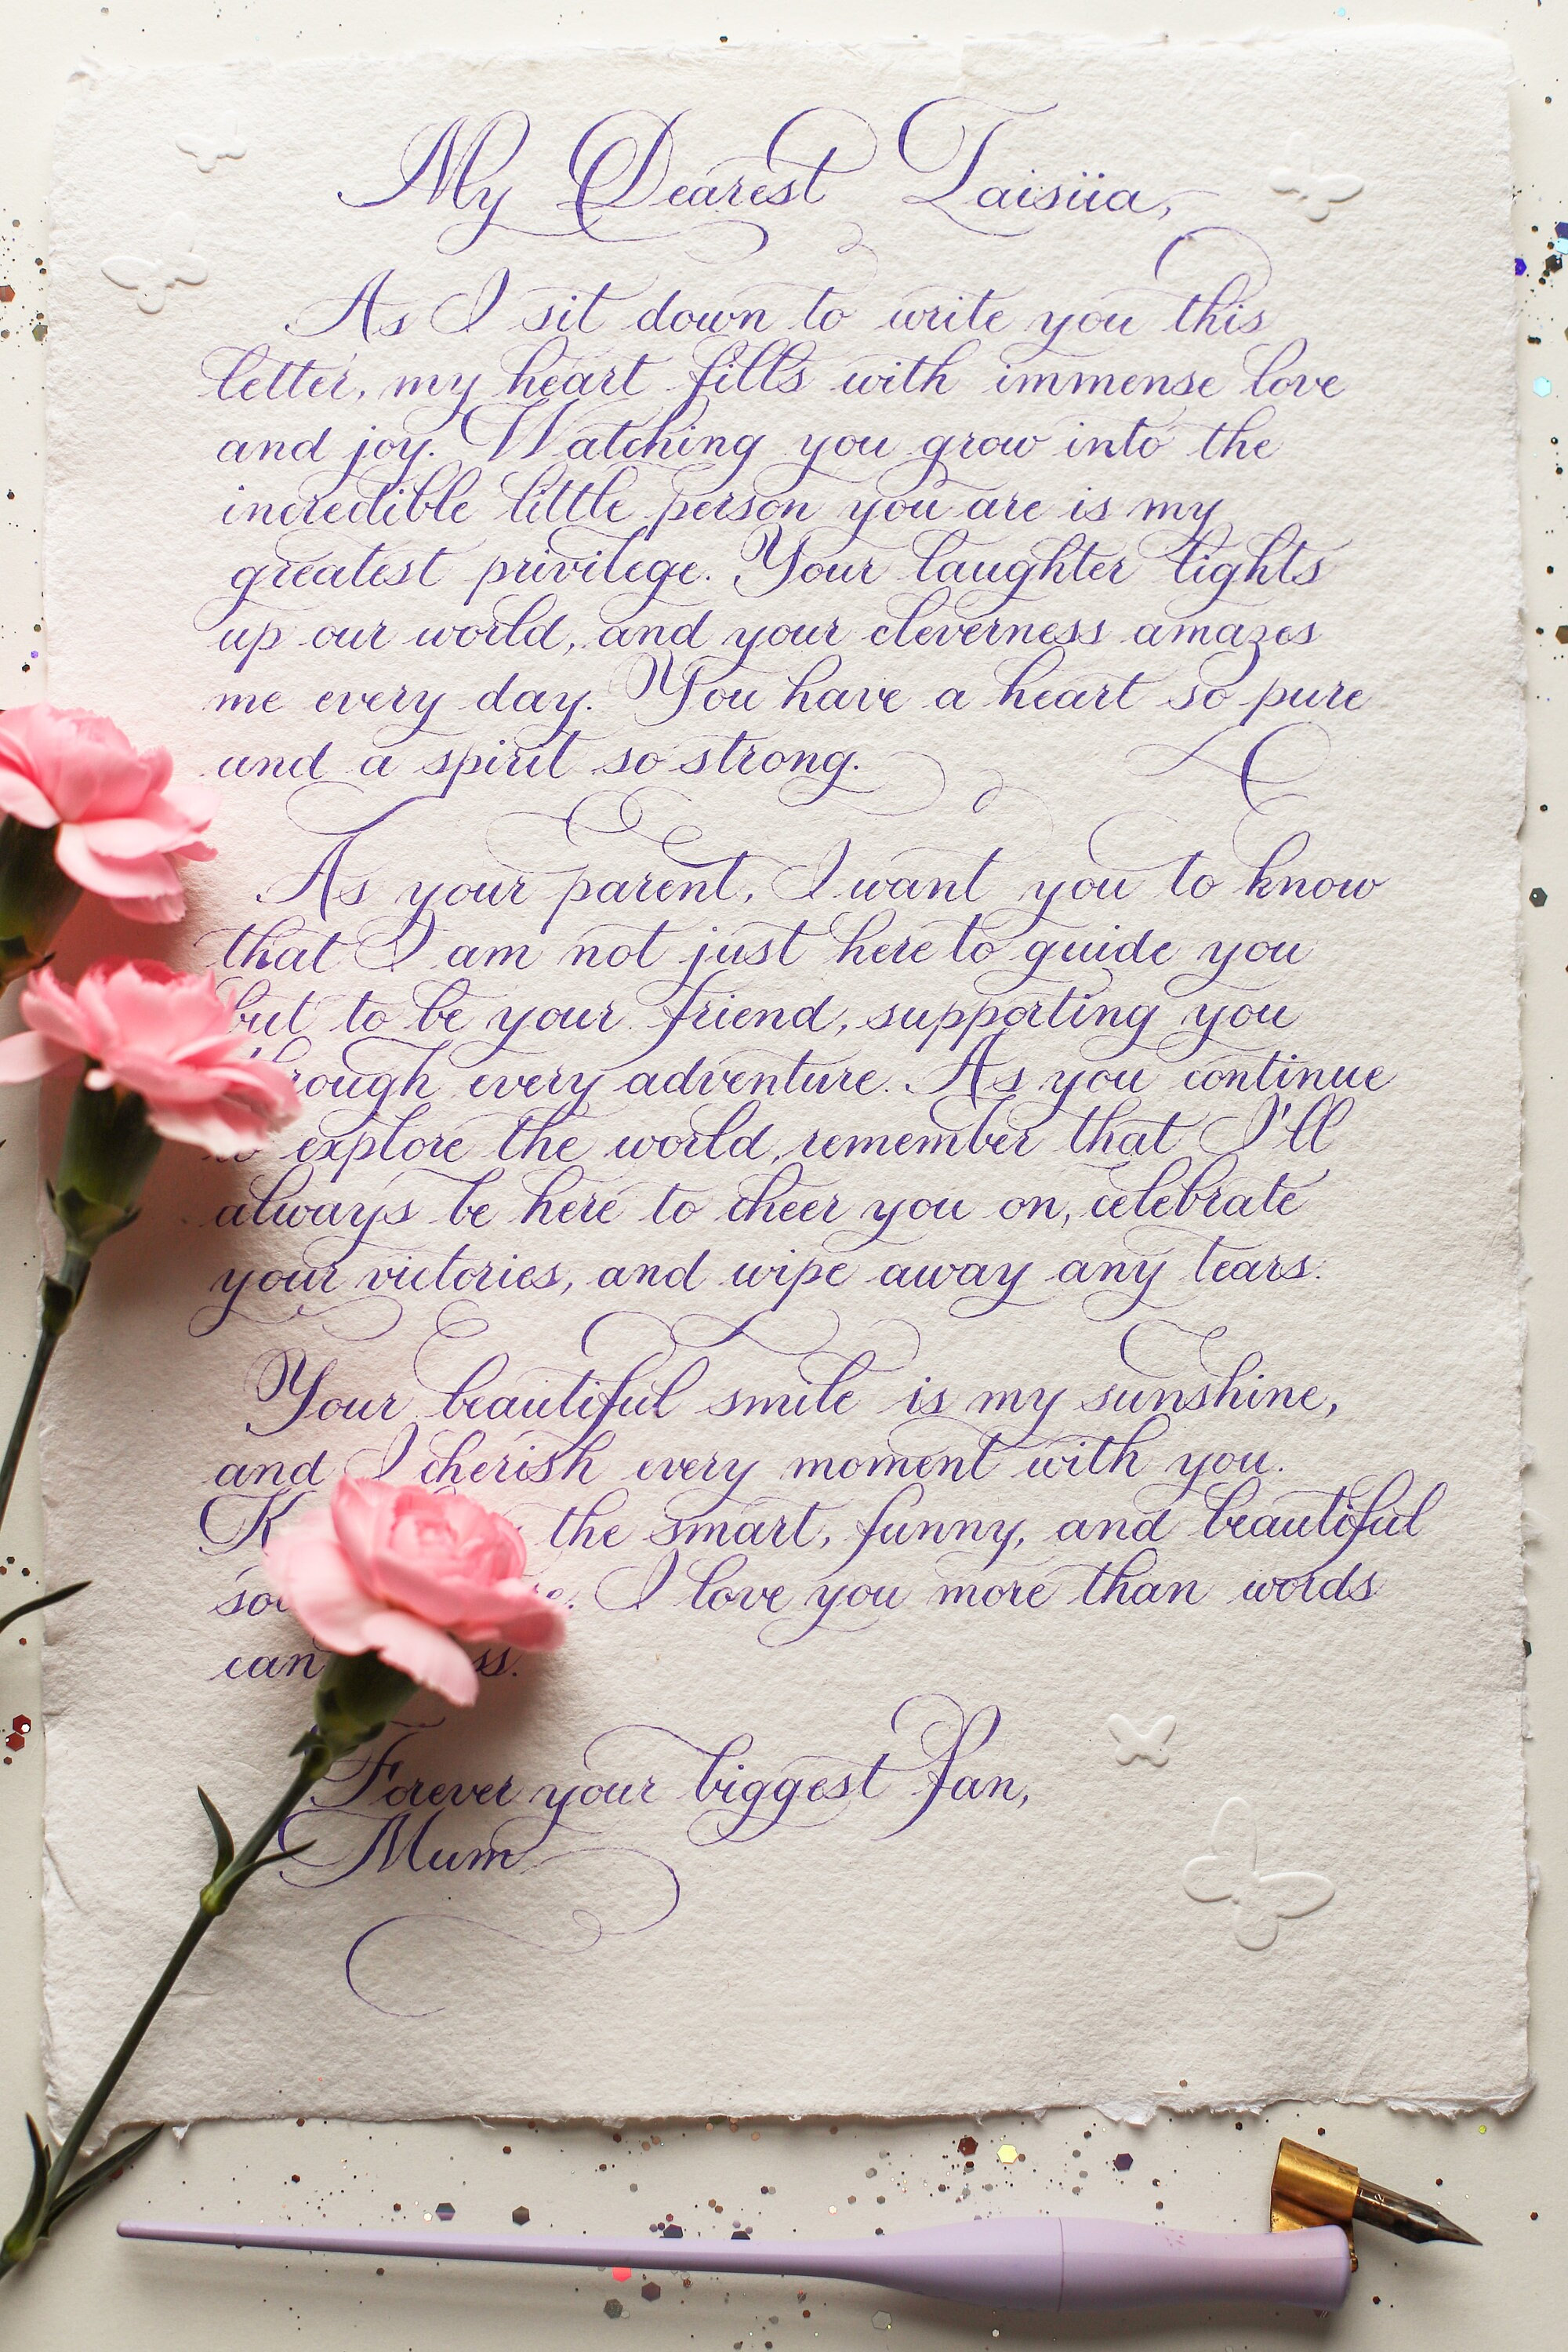 My Dearest Taisiia,
As I sit down to write you this
letter, my heart fills with immense love
and joy. Watching you grow into the
incredible little person you are is my
greatest privilege. Your laughter lights
up our world, and your cleverness amazes
me every day. You have a heart so pure
and a spirit so strong.
As your parent, I want you to know
that I am not just here to guide you
but to be your friend, supporting you
every adventure. As you continue
explore the world, remember that I'll
always be here to cheer you on, celebrate
your victories, and wipe away any tears.
Your beautiful smile is my sunshine,
and I cherish every moment with you.
the smart, funny, and beautiful
I love you more than words
can
Forever your biggest fan,
Mum